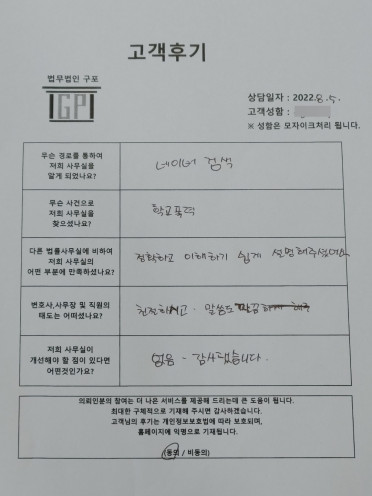 고객후기
법무법인 구포
GP
상담일자 : 2022. 8. 5.
고객성함 :
※ 성함은 모자이크처리 됩니다.
무슨 경로를 통하여
저희 사무실을
알게 되었나요?
네이버 검색
무슨 사건으로
저희 사무실을
찾으셨나요?
학교폭력
다른 법률사무실에 비하여
저희 사무실의
어떤 부분에 만족하셨나요?
정확하고 이해하기 쉽게 설명해주셨어요
변호사,사무장 및 직원의
태도는 어떠셨나요?
친절하시고. 말씀도
저희 사무실이
개선해야 할 점이 있다면
어떤것인가요?
없음 - 감사했습니다.
의뢰인분의 참여는 더 나은 서비스를 제공해 드리는데 큰 도움이 됩니다.
최대한 구체적으로 기재해 주시면 감사하겠습니다.
고객님의 후기는 개인정보보호법에 따라 보호되며,
홈페이지에 익명으로 기재됩니다.
(동의 / 비동의)